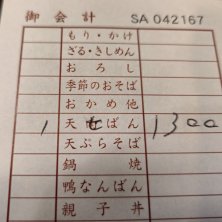 御会計 SA 042167
もり・かけ
ざる・きしめん
おろし
季節のおそば
おかめ他
1 天せばん 1300
天ぷらそば
鍋焼
鴨なんばん
親子丼